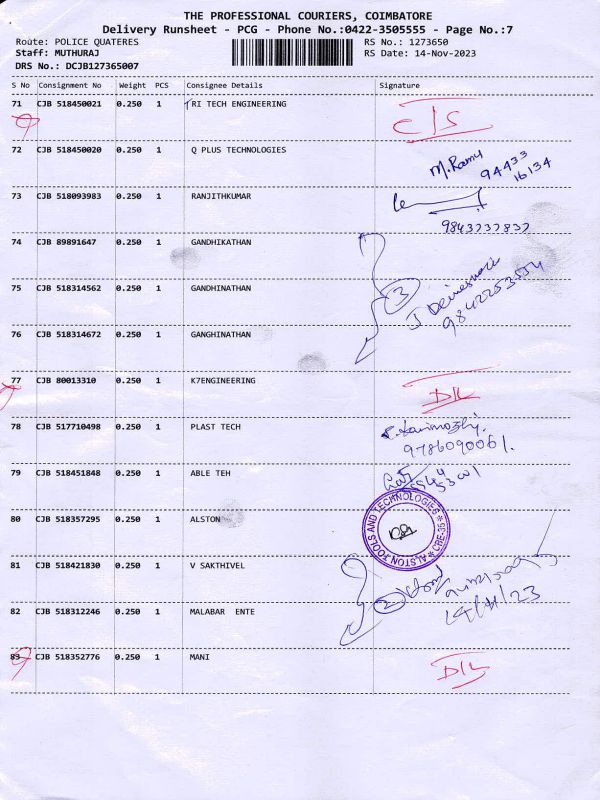 THE PROFESSIONAL COURIERS, COIMBATORE
Delivery Runsheet - PCG - Phone No.:0422-3505555 - Page No.:7
Route: POLICE QUATERES RS No.: 1273650
Staff: MUTHURAJ RS Date: 14-Nov-2023
DRS No.: DCJB127365007
S No Consignment No Weight PCS Consignee Details Signature
71 CJB 518450021 0.250 1 TRI TECH ENGINEERING C/S
72 CJB 518450020 0.250 1 Q PLUS TECHNOLOGIES M. Ramu
94433
16134
73 CJB 518093983 0.250 1 RANJITHKUMAR
9843737837
74 CJB 89891647 0.250 1 GANDHIKATHAN
75 CJB 518314562 0.250 1 GANDHINATHAN 3
9842253554
76 CJB 518314672 0.250 1 GANGHINATHAN
77 CJB 80013310 0.250 1 K7ENGINEERING D/L
78 CJB 517710498 0.250 1 PLAST TECH
9786090061.
79 CJB 518451848 0.250 1 ABLE TEH
80 CJB 518357295 0.250 1 ALSTON ALSTON TOOLS AND TECHNOLOGIES
81 CJB 518421830 0.250 1 V SAKTHIVEL
82 CJB 518312246 0.250 1 MALABAR ENTE 2
14/11/23
83 CJB 518352776 0.250 1 MANI D/L